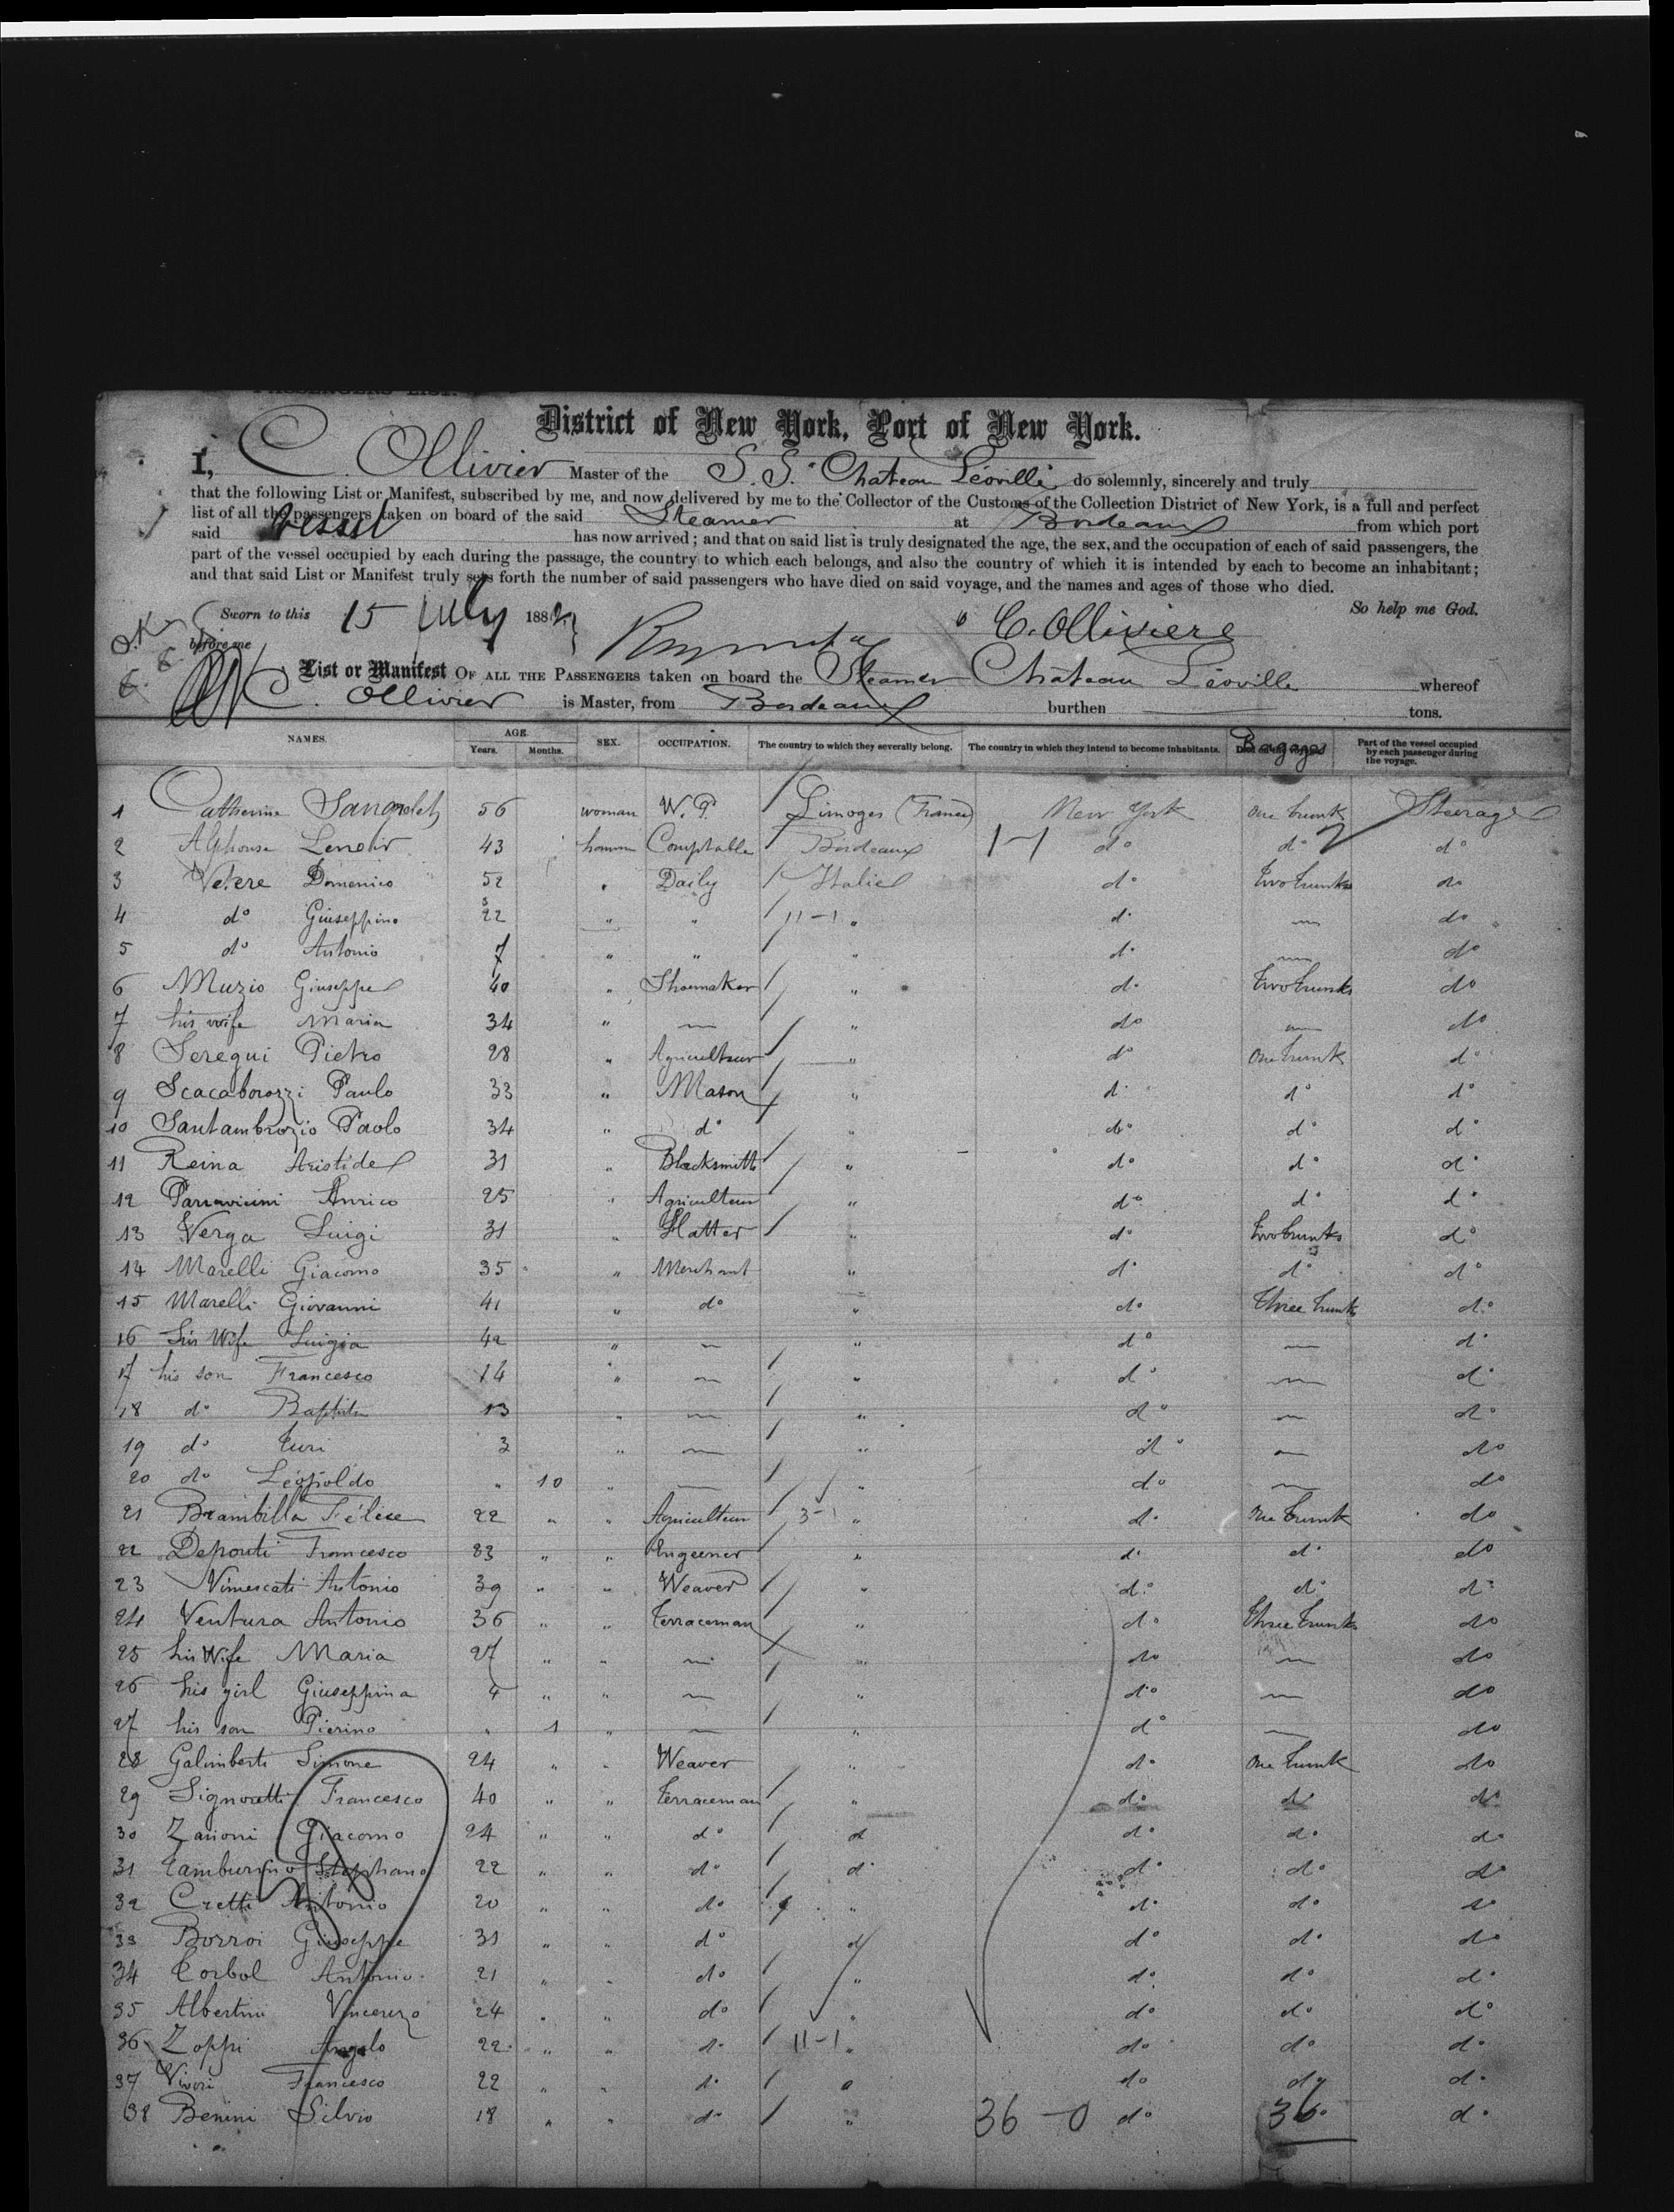 District of New York, Port of New York.
I, C. Ollivier Master of the S.S. Chateau Léoville do solemnly, sincerely and truly
that the following List or Manifest, subscribed by me, and now delivered by me to the Collector of the Customs of the Collection District of New York, is a full and perfect
list of all the passengers taken on board of the said Steamer at Bordeaux from which port
said vessel has now arrived; and that on said list is truly designated the age, the sex, and the occupation of each of said passengers, the
part of the vessel occupied by each during the passage, the country to which each belongs, and also the country of which it is intended by each to become an inhabitant;
and that said List or Manifest truly sets forth the number of said passengers who have died on said voyage, and the names and ages of those who died.
So help me God.
Sworn to this 15 July 188
before me
C. Olliviere
List or Manifest OF ALL THE PASSENGERS taken on board the Steamer Chateau Léoville whereof
C. Ollivier is Master, from Bordeaux burthen tons.
NAMES. AGE. Years. Months. SEX. OCCUPATION. The country to which they severally belong. The country in which they intend to become inhabitants. Bagages Part of the vessel occupied by each passenger during the voyage.
1 Catherine 56 woman W.P. Limoges (France) New York One trunk Steerage
2 Alphonse Lenoir 43 homme Comptable Bordeaux 1-1 do do do
3 Vetere Domenico 52 " Daily Italie do two trunks do
4 do Giuseppino 22 " " 11-1 " do — do
5 do Antonio 7 " " " do — do
6 Muzio Giuseppe 40 " Shoemaker " do two trunks do
7 his wife Maria 34 " — " do — do
8 Seregui Pietro 28 " Agriculteur " do One trunk do
9 Scacaborozzi Paulo 33 " Mason " do do do
10 Santambrozio Paolo 34 " do " do do do
11 Reina Aristide 31 " Blacksmith " do do do
12 Parravicini Enrico 25 " Agriculteur " do do do
13 Verga Luigi 31 " Hatter " do two trunks do
14 Marelli Giacomo 35 " Merchant " do do do
15 Marelli Giovanni 41 " do " do three trunks do
16 his Wife Luigia 42 " — " do — do
17 his son Francesco 14 " — " do — do
18 do Baptista 13 " — " do — do
19 do Turi 3 " — " do — do
20 do Léopoldo " 10 " — " do — do
21 Brambilla Félice 22 " " Agriculteur 3-1 " do One trunk do
22 Deponti Francesco 23 " " Engeener " do do do
23 Vimercati Antonio 39 " " Weaver " do do do
24 Ventura Antonio 36 " " Terraceman " do three trunks do
25 his Wife Maria 27 " " — " do — do
26 his girl Giuseppina 4 " " — " do — do
27 his son Pierino " 1 " — " do — do
28 Galimberti Simone 24 " " Weaver " do One trunk do
29 Signoretti Francesco 40 " " Terraceman " do do do
30 Zanoni Giacomo 24 " " do d do do do
31 Tamburino Stephano 22 " " do do do do do
32 Cretti Antonio 20 " " do " do do do
33 Borroi Giuseppe 31 " " do d do do do
34 Corbol Antonio 21 " " do " do do do
35 Albertini Vincenzo 24 " " do " do do do
36 Zoppi Angelo 22 " " do 11-1 " do do do
37 Vivori Francesco 22 " " do " do do do
38 Benini Silvio 18 " " do " 36-0 do 36 do